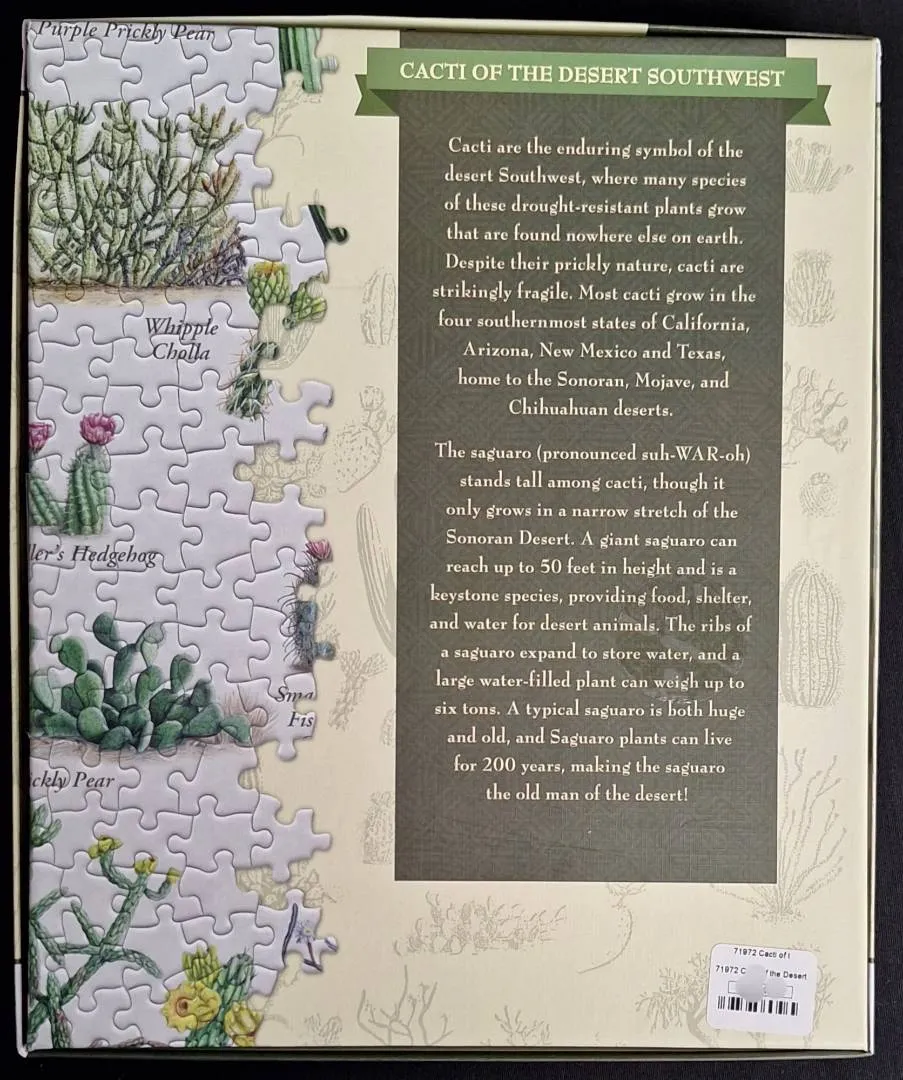 Purple Prickly Pear
CACTI OF THE DESERT SOUTHWEST
Cacti are the enduring symbol of the
desert Southwest, where many species
of these drought-resistant plants grow
that are found nowhere else on earth.
Despite their prickly nature, cacti are
strikingly fragile. Most cacti grow in the
four southernmost states of California,
Arizona, New Mexico and Texas,
home to the Sonoran, Mojave, and
Chihuahuan deserts.
The saguaro (pronounced suh-WAR-oh)
stands tall among cacti, though it
only grows in a narrow stretch of the
Sonoran Desert. A giant saguaro can
reach up to 50 feet in height and is a
keystone species, providing food, shelter,
and water for desert animals. The ribs of
a saguaro expand to store water, and a
large water-filled plant can weigh up to
six tons. A typical saguaro is both huge
and old, and Saguaro plants can live
for 200 years, making the saguaro
the old man of the desert!
Whipple
Cholla
ler's Hedgehog
Sma
Fis
ickly Pear
71972 Cacti of t
71972 C f the Desert